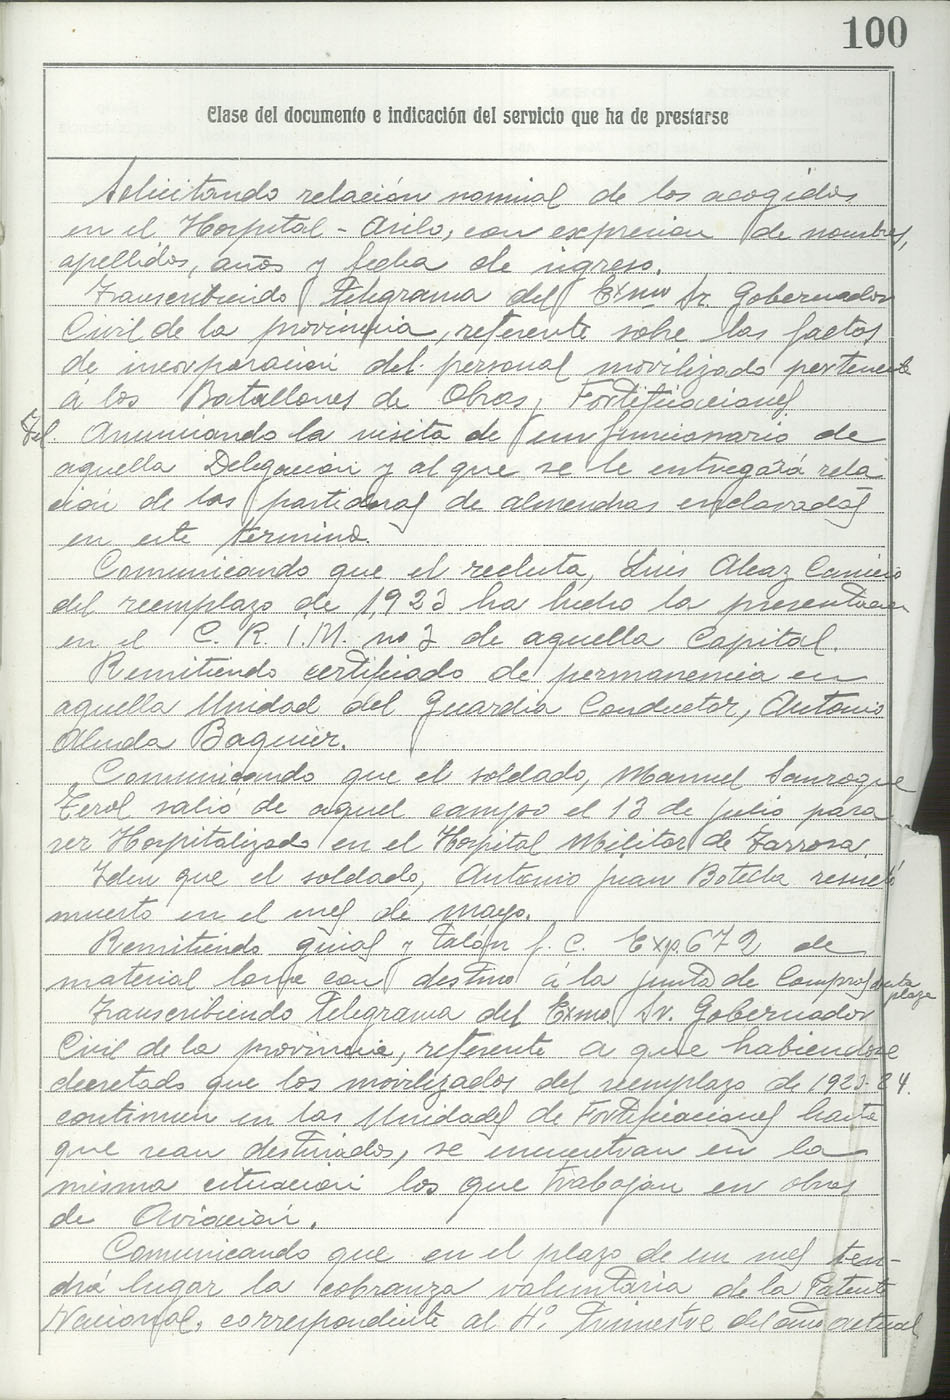 100
Clase del documento e indicación del servicio que ha de prestarse
Solicitando relación nominal de los acogidos
en el Hospital - Asilo, con expresion de nombres,
apellidos, años y fecha de ingreso.
Transcribiendo Telegrama del Exmo Sr. Gobernador
Civil de la provincia, referente sobre las factos
de incorporación del personal movilizado pertenente
á los Batallones de Obras, Fortificaciones
Tel. Anunciando la visita de un funcionario de
aquella Delegación y al que se le entregará rela
ción de las partidas de almendras enclavadas
en este término.
Comunicando que el recluta, Luis Alcaz
del reemplazo de 1,923 ha hecho la presentacion
en el C. R. I. M. no 3 de aquella Capital.
Remitiendo certificado de permanencia en
aquella Unidad del Guardia Conductor, Antonio
Baguer.
Comunicando que el soldado, Manuel Sanroque
Terol salió de aquel campo el 13 de julio para
ser Hospitalizado en el Hospital Militar de Tarrosa.
Idem que el soldado, Antonio Juan Botella resultó
muerto en el mes de mayo.
Remitiendo guias y talón f. C. Exp. 672 de
material con destino á la junta de Compras de esta
plaza
Transcribiendo Telegrama del Exmo Sr. Gobernador
Civil de la provincia, referente a que habiendose
decretado que los movilizados del reemplazo de 1923-24.
continuen en las Unidades de Fortificaciones hasta
que sean destinados, se encuentran en la
misma situación los que trabajan en obras
de Aviación.
Comunicando que en el plazo de un mes ten-
drá lugar la cobranza voluntaria de la Patente
Nacional, correspondiente al 4º Trimestre del año actual